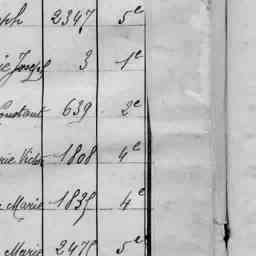 ph 2347 5e
ie Joseph 3 1e
Constant 639 2e
rie Victor 1808 4e
Marie 1835 4e
Marie 2475 5e